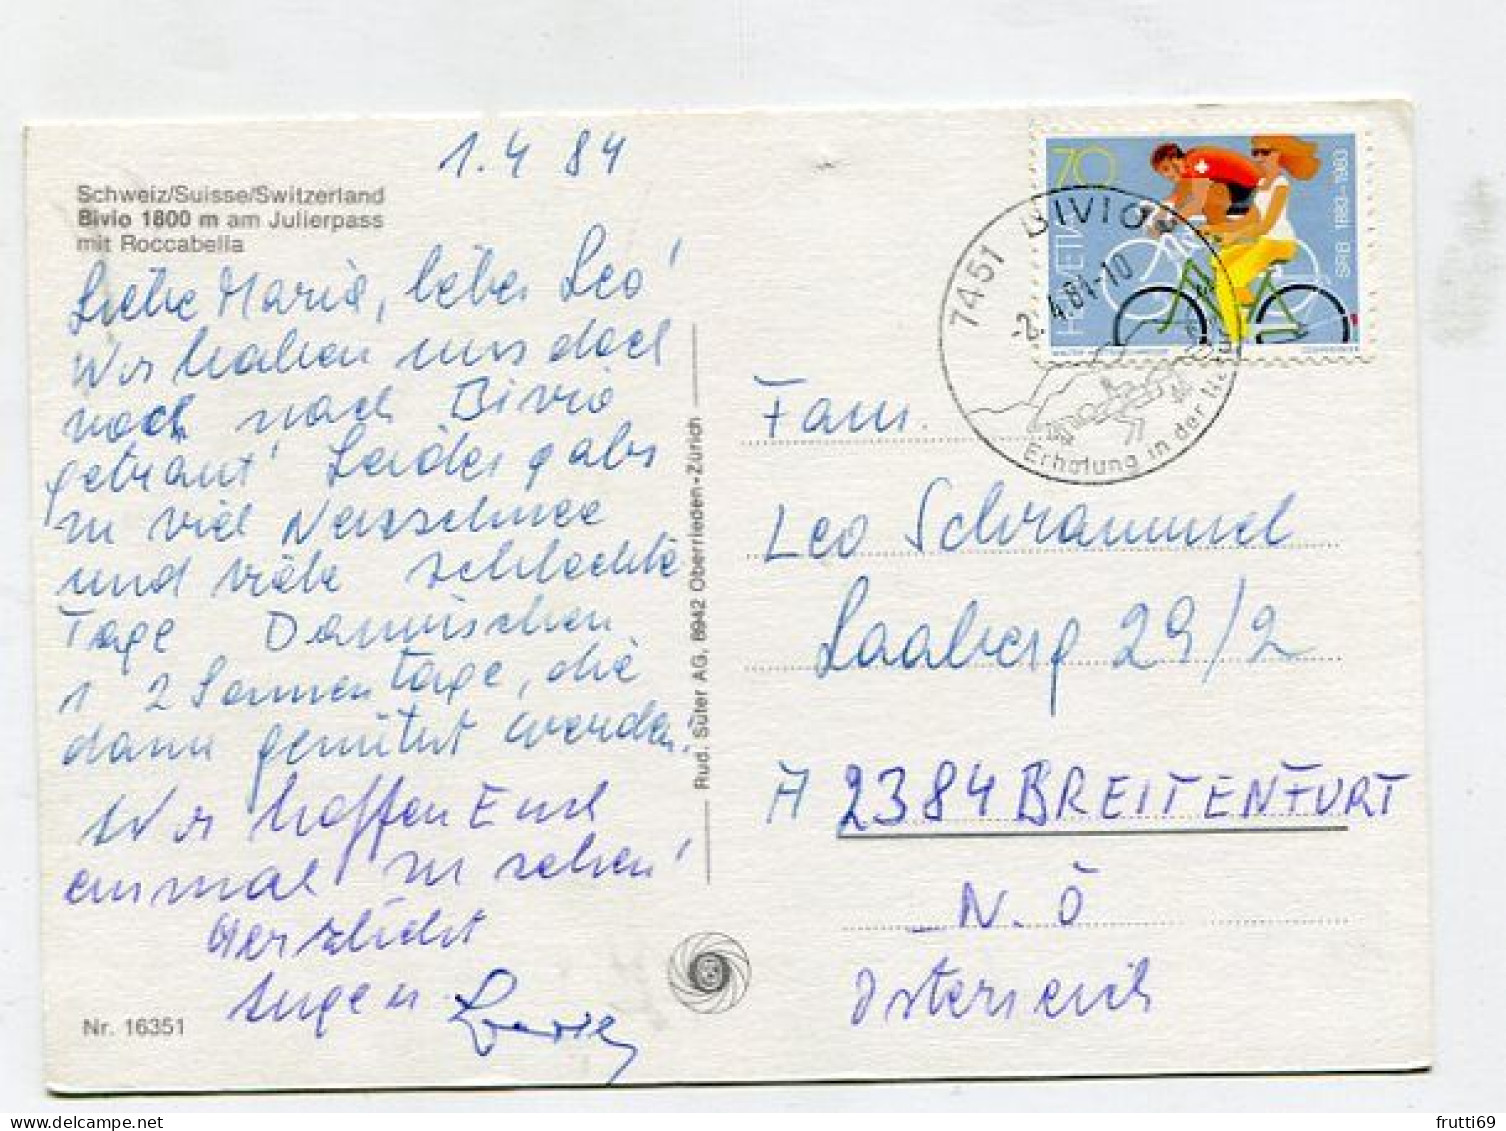 1.4 84
Schweiz/Suisse/Switzerland
Bivio 1800 m am Julierpass
mit Roccabella
Liebe Maria, lieber Leo!
Wir haben uns doch
noch nach Bivio
getraut! Leider gabs
zu viel Neuschnee
und viele schlechte
Tage Dazwischen
1 2 Sonnentage, die
dann genützt werden!
Wir hoffen Euch
einmal zu sehen!
Herzlichst
Eugen
Nr. 16351
Rud. Suter AG, 8942 Oberrieden-Zürich
70
HELVETIA
SRB 1883-1983
7451 BIVIO
-2.4.84-10
Erholung in der
Fam.
Leo Schrammel
Laaberg 29/2
A 2384 BREITENFURT
N.Ö
Österreich
frutti69